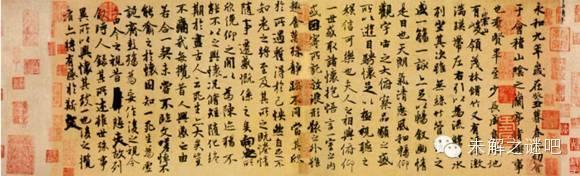 永和九年歲在癸丑暮春之初會
于會稽山陰之蘭亭脩稧事
也群賢畢至少長咸集此地
有崇山峻領茂林脩竹又有清流激
湍暎帶左右引以為流觴曲水
列坐其次雖無絲竹管弦之
盛一觴一詠亦足以暢敘幽情
是日也天朗氣清惠風和暢仰
觀宇宙之大俯察品類之盛
所以遊目騁懷足以極視聽之
娛信可樂也夫人之相與俯仰
一世或取諸懷抱悟言一室之內
或因寄所託放浪形骸之外雖
趣舍萬殊靜躁不同當其欣
於所遇蹔得於己怏然自足不
知老之將至及其所之既惓情
隨事遷感慨係之矣向之所
欣俛仰之間以為陳迹猶不
能不以之興懷況脩短隨化終
期於盡古人云死生亦大矣豈
不痛哉每攬昔人興感之由
若合一契未嘗不臨文嗟悼不
能喻之於懷固知一死生為虛
誕齊彭殤為妄作後之視今
亦由今之視昔悲夫故列
敘時人錄其所述雖世殊事
異所以興懷其致一也後之攬
者亦將有感於斯文
未解之谜吧